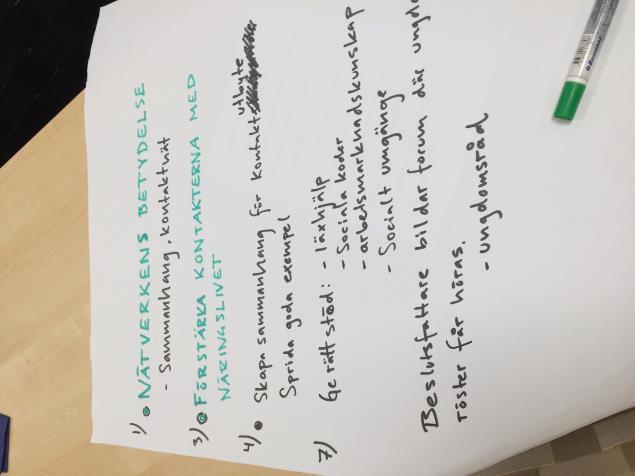 1) • NÄTVERKENS BETYDELSE
- Sammanhang, kontaktnät
3) • FÖRSTÄRKA KONTAKTERNA MED
NÄRINGSLIVET
4) • Skapa sammanhang för kontaktutbyte
Sprida goda exempel
7) Ge rätt stöd: - läxhjälp
- Sociala koder
- arbetsmarknadskunskap
- Socialt umgänge
Beslutsfattare bildar forum där ungdo
röster får höras.
- ungdomsråd